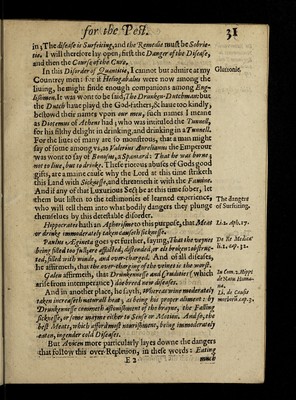 for the Pest.
31
in; The disease is Surfeicing, and the Remedie must be Sobrie-
tie. I will therefore lay open, first the Danger of the Disease,
and then the Course of the Cure.
In this Disorder of Quantitie, I cannot but admire at my
Glutonie.
Countrey men: for if Heliogabalus were now among the
living, he might finde enough companions among Eng-
lishmen. It was wont to be said, The Drunken Dutchman: but
the Dutch have playd the God-fathers, & have too kindly,
bestowd their names upon our men, such names I meane
as Diotemus of Athens had; who was intituled the Tunnell,
for his filthy delight in drinking, and drinking in a Tunnell.
For the lives of many are so monstrous, that a man might
say of some among us, as Valerius Aurelianus the Emperour
was wont to say of Bonosus, a Spaniard: That he was borne;
not to live, but to drinke. These riotous abuses of Gods good
gifts, are a maine cause why the Lord at this time striketh
this Land with Sicknesse, and threatneth it with the Famine.
And if any of that Luxurious Sect be at this time sober, let
them but listen to the testimonies of learned experience,
The dangers
of Surfeiting.
who will tell them into what bodily dangers they plunge
themselues by this detestable disorder.
Hippocrates hath an Aphorisme to this purpose, that Meat
Li. 2. Aph. 17.
or drinke immoderately taken causeth sicknesse.
Paulus Ægineta goes yet further, saying, That the veynes
De Re Medica
li. 1. cap. 32.
being filled too full, are assailed, distended, or els broken: obstruc-
ted, filled with winds, and over-charged. And of all diseases,
he affirmeth, that the over-charging of the veines is the worst.
Galen affirmeth, that Drunkennesse and Cruditie (which
In Com. 2. Hippi
de Natu. Huma-
na.
arise from intemperance) die breed new diseases.
And in another place, he sayth, Wherras wine moderately
Li. de Causis
morborū. cap. 3.
taken increaseth naturall heat, as being his proper aliment: by
Drunkennesse commeth astonishment of the braine, the Falling
sicknesse, or some mayme either to Sense or Motion. And so, the
best Meats, which afford most nourishment, being immoderately
eaten, ingender cold Diseases.
But Avicen more particularly layes downe the dangers
that follow this over-Repletion, in these words: Eating
E 2
much